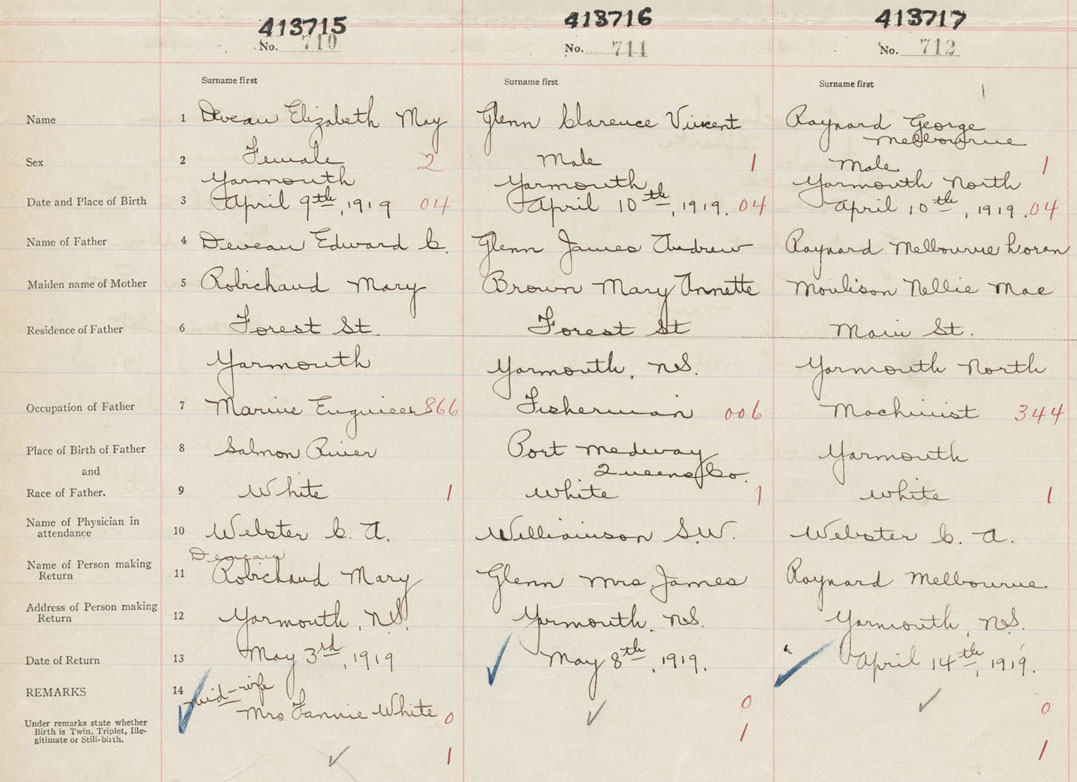 413715 413716 413717
No. 710 No. 711 No. 712
Surname first Surname first Surname first
Name 1 Deveau Elizabeth May Glenn Clarence Vincent Raynard George
Melbourne
Sex 2 Female 2 Male 1 Male 1
Yarmouth Yarmouth Yarmouth North
Date and Place of Birth 3 April 9th, 1919 04 April 10th, 1919. 04 April 10th, 1919. 04
Name of Father 4 Deveau Edward C. Glenn James Andrew Raynard Melbourne Loran
Maiden name of Mother 5 Robichaud Mary Brown Mary Annette Moulison Nellie Mae
Residence of Father 6 Forest St. Forest St Main St.
Yarmouth Yarmouth, N.S. Yarmouth North
Occupation of Father 7 Marine Engineer 866 Fisherman 006 Machinist 344
Place of Birth of Father 8 Salmon River Port Medway Yarmouth
and Queens Co.
Race of Father. 9 White 1 White 1 White 1
Name of Physician in
attendance 10 Webster C. A. Williamson S.W. Webster C. A.
Deveau
Name of Person making
Return 11 Robichaud Mary Glenn Mrs James Raynard Melbourne
Address of Person making
Return 12 Yarmouth, N.S. Yarmouth, N.S. Yarmouth, N.S.
Date of Return 13 May 3rd, 1919 May 8th, 1919. April 14th, 1919.
REMARKS 14 mid-wife
Mrs Fannie White 0 0 0
Under remarks state whether
Birth is Twin, Triplet, Ille-
gitimate or Still-birth.
1 1 1